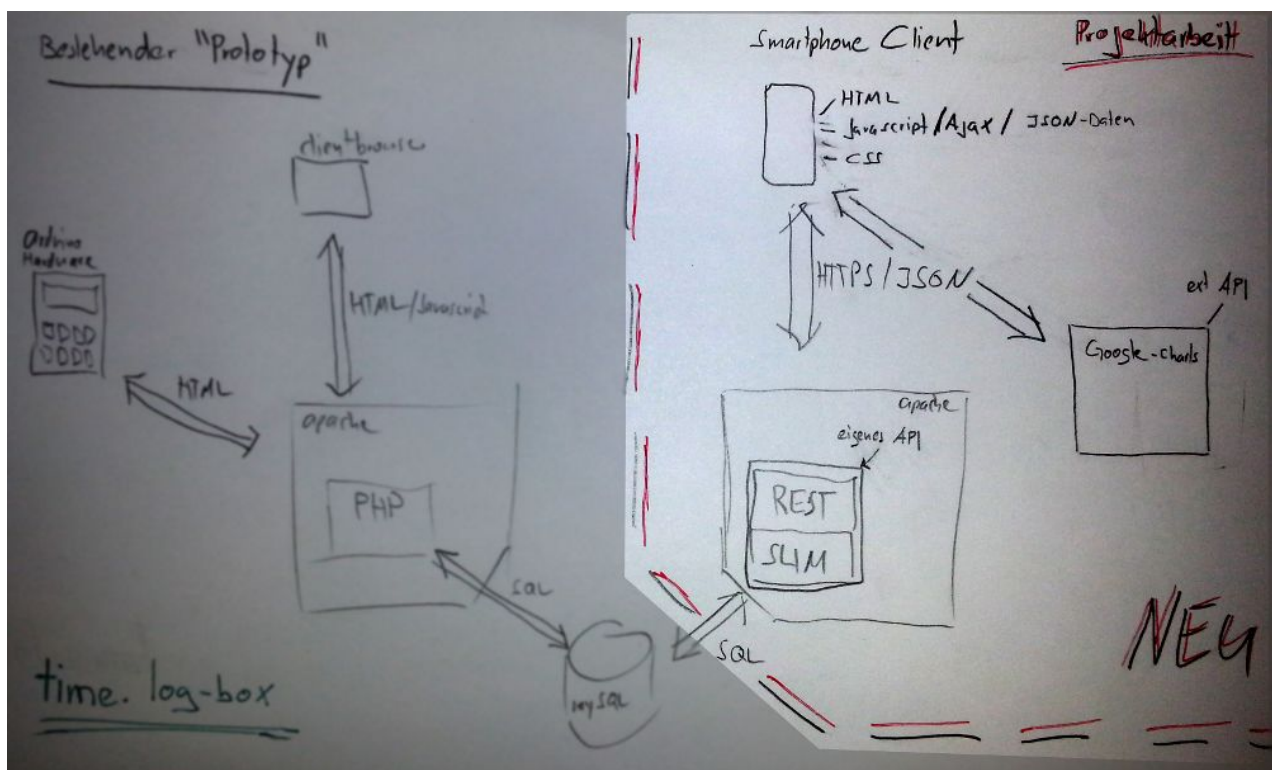 Bestehender "Prototyp"
clientbrowser
Arduino
Hardware
HTML/Javascript
HTML
apache
PHP
SQL
mySQL
time.log-box
Smartphone Client
Projektarbeit
HTML
Javascript/Ajax/ JSON-Daten
CSS
HTTPS/JSON
ext API
Google-charts
apache
eigenes API
REST
SLIM
SQL
NEU